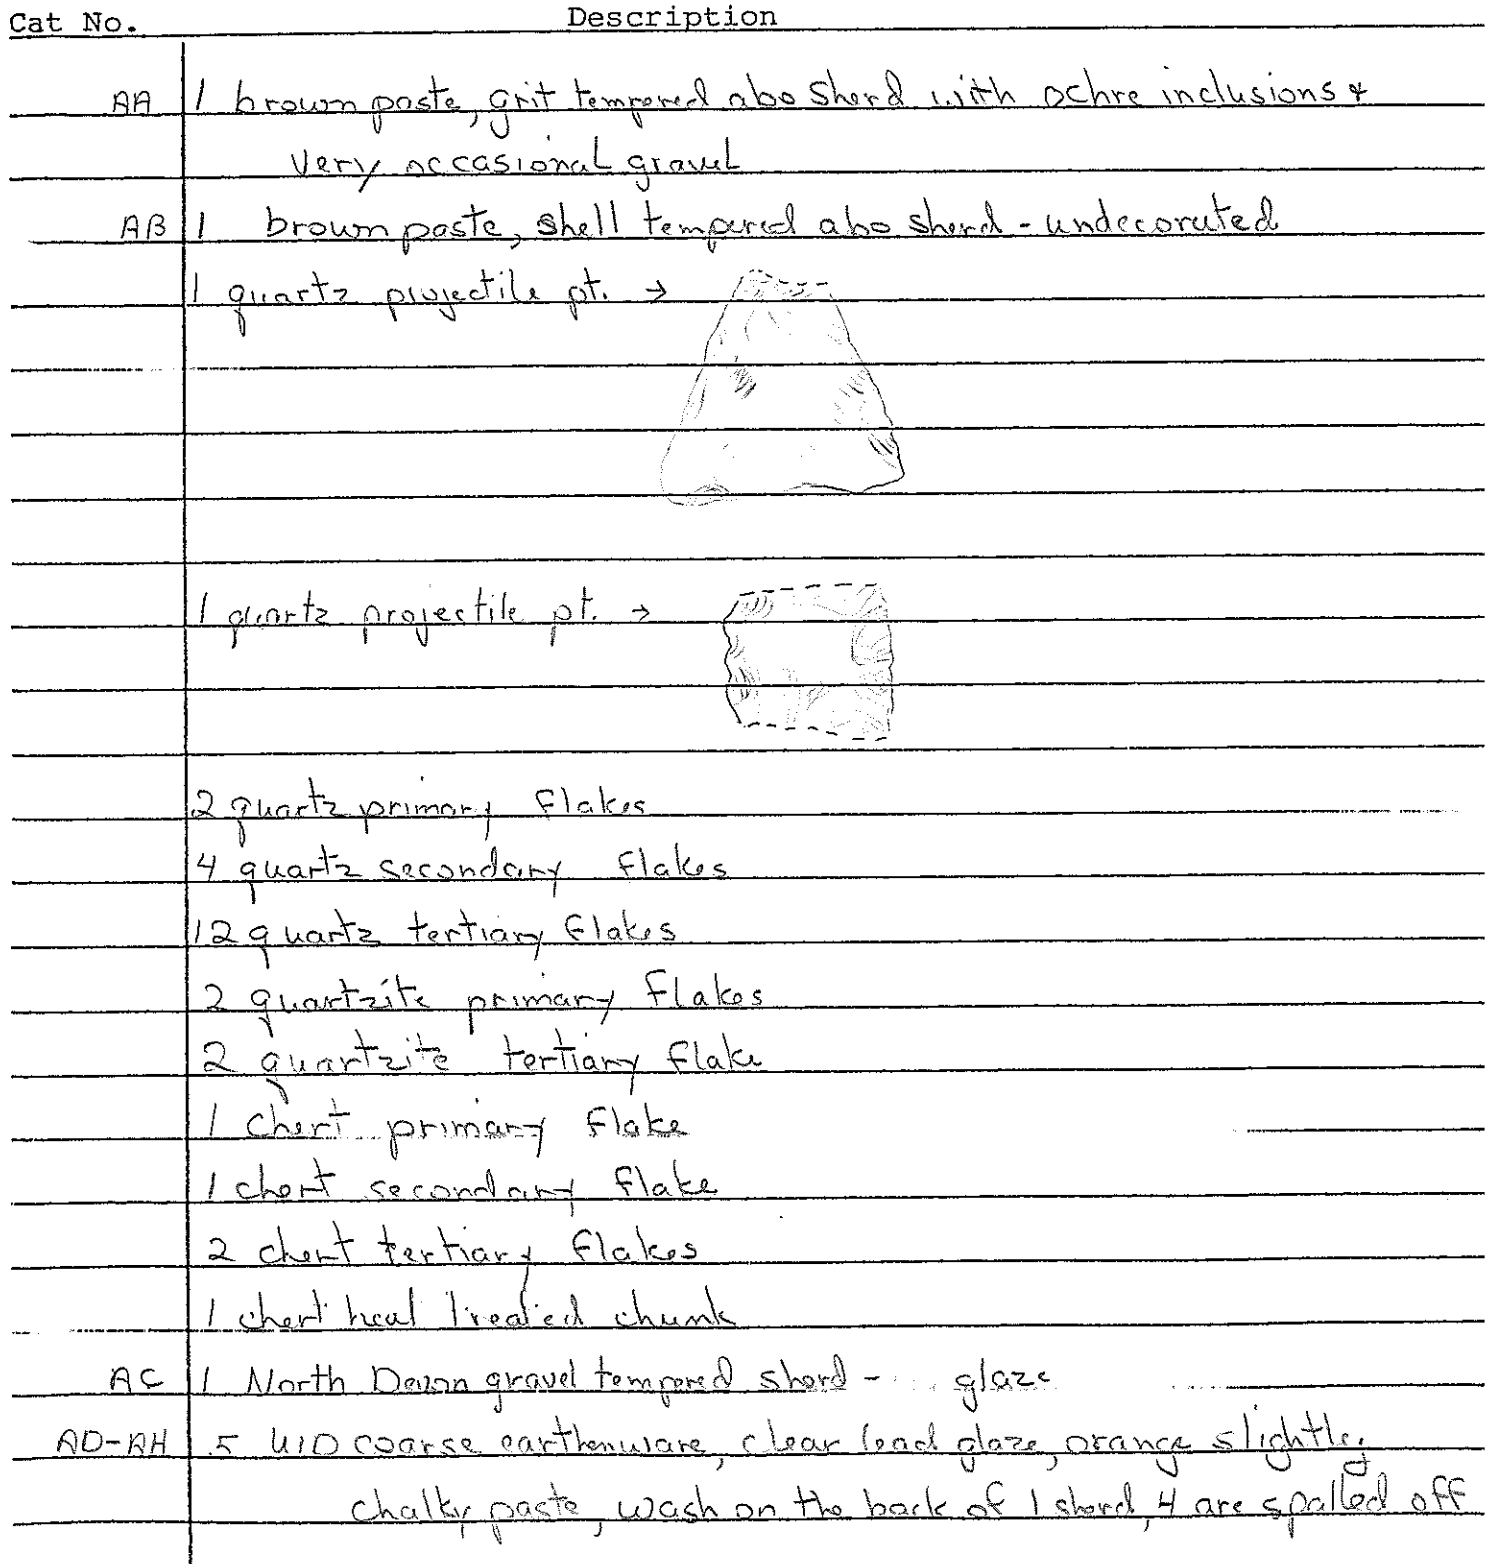 Cat No. Description
AA 1 brown paste, grit tempered abo sherd with ochre inclusions &
very occasional gravel
AB 1 brown paste, shell tempered abo sherd - undecorated
1 quartz projectile pt. →
1 quartz projectile pt. →
2 quartz primary flakes
4 quartz secondary flakes
12 quartz tertiary flakes
2 quartzite primary flakes
2 quartzite tertiary flake
1 chert primary flake
1 chert secondary flake
2 chert tertiary flakes
1 chert heat treated chunk
AC 1 North Devon gravel tempered sherd - glaze
AD-AH 5 UID coarse earthenware, clear lead glaze, orange slightly
chalky paste, wash on the back of 1 sherd, 4 are spalled off